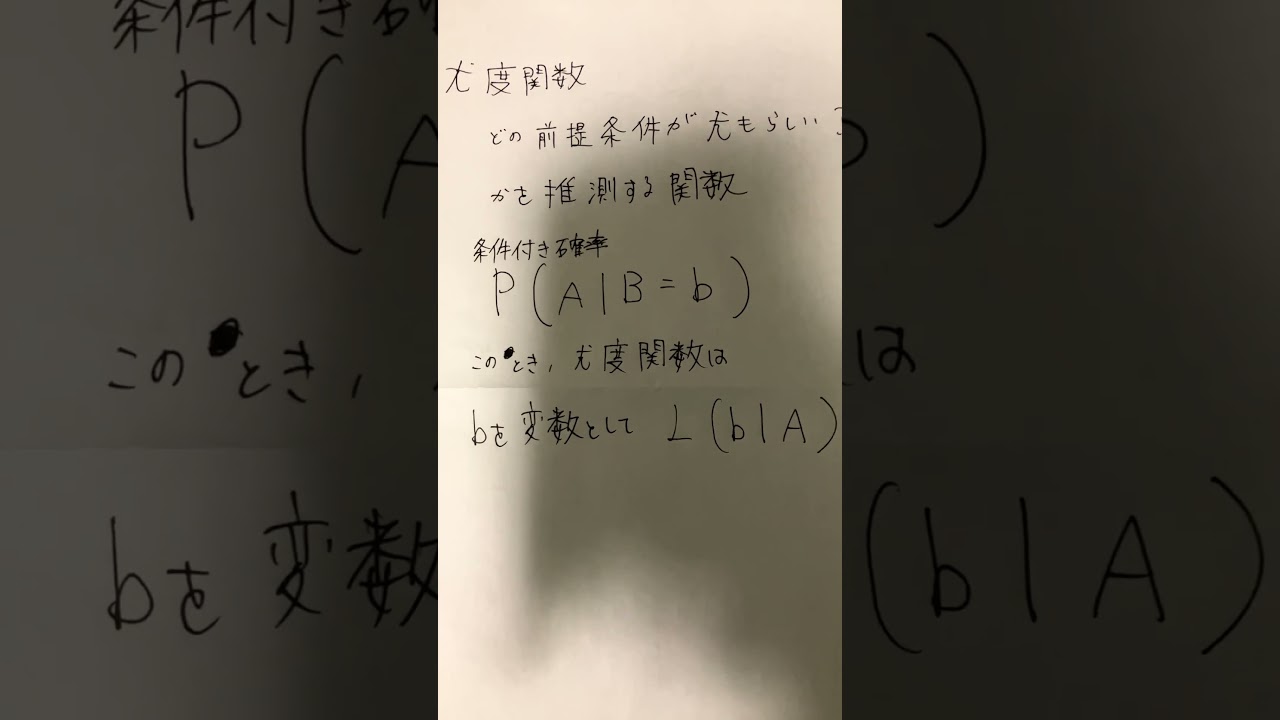 尤度関数
どの前提条件が尤もらしい
かを推測する関数
条件付き確率
P(A|B=b)
このとき,尤度関数は
bを変数として L(b|A)